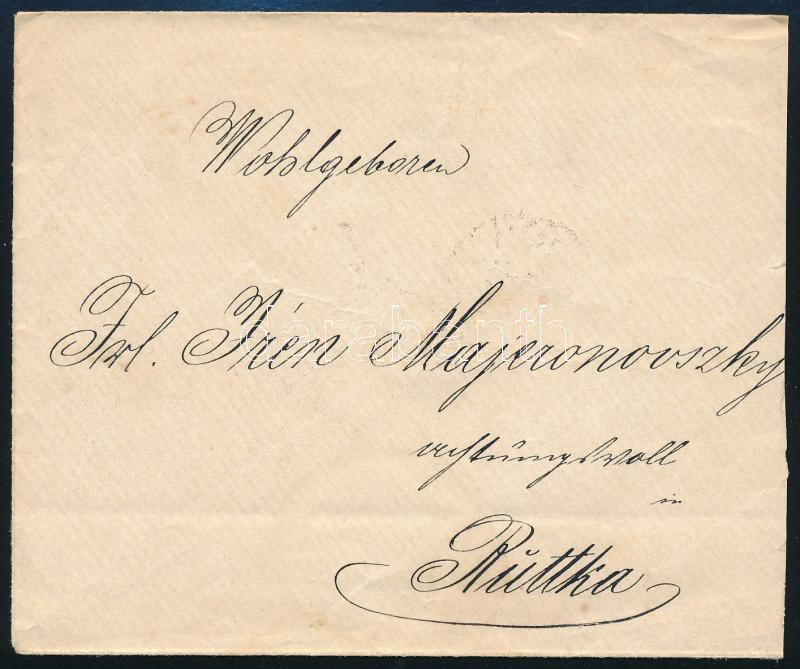 Wohlgeboren
Frl. Irén Majeronovszky
achtungsvoll
in
Ruttka
darabanth